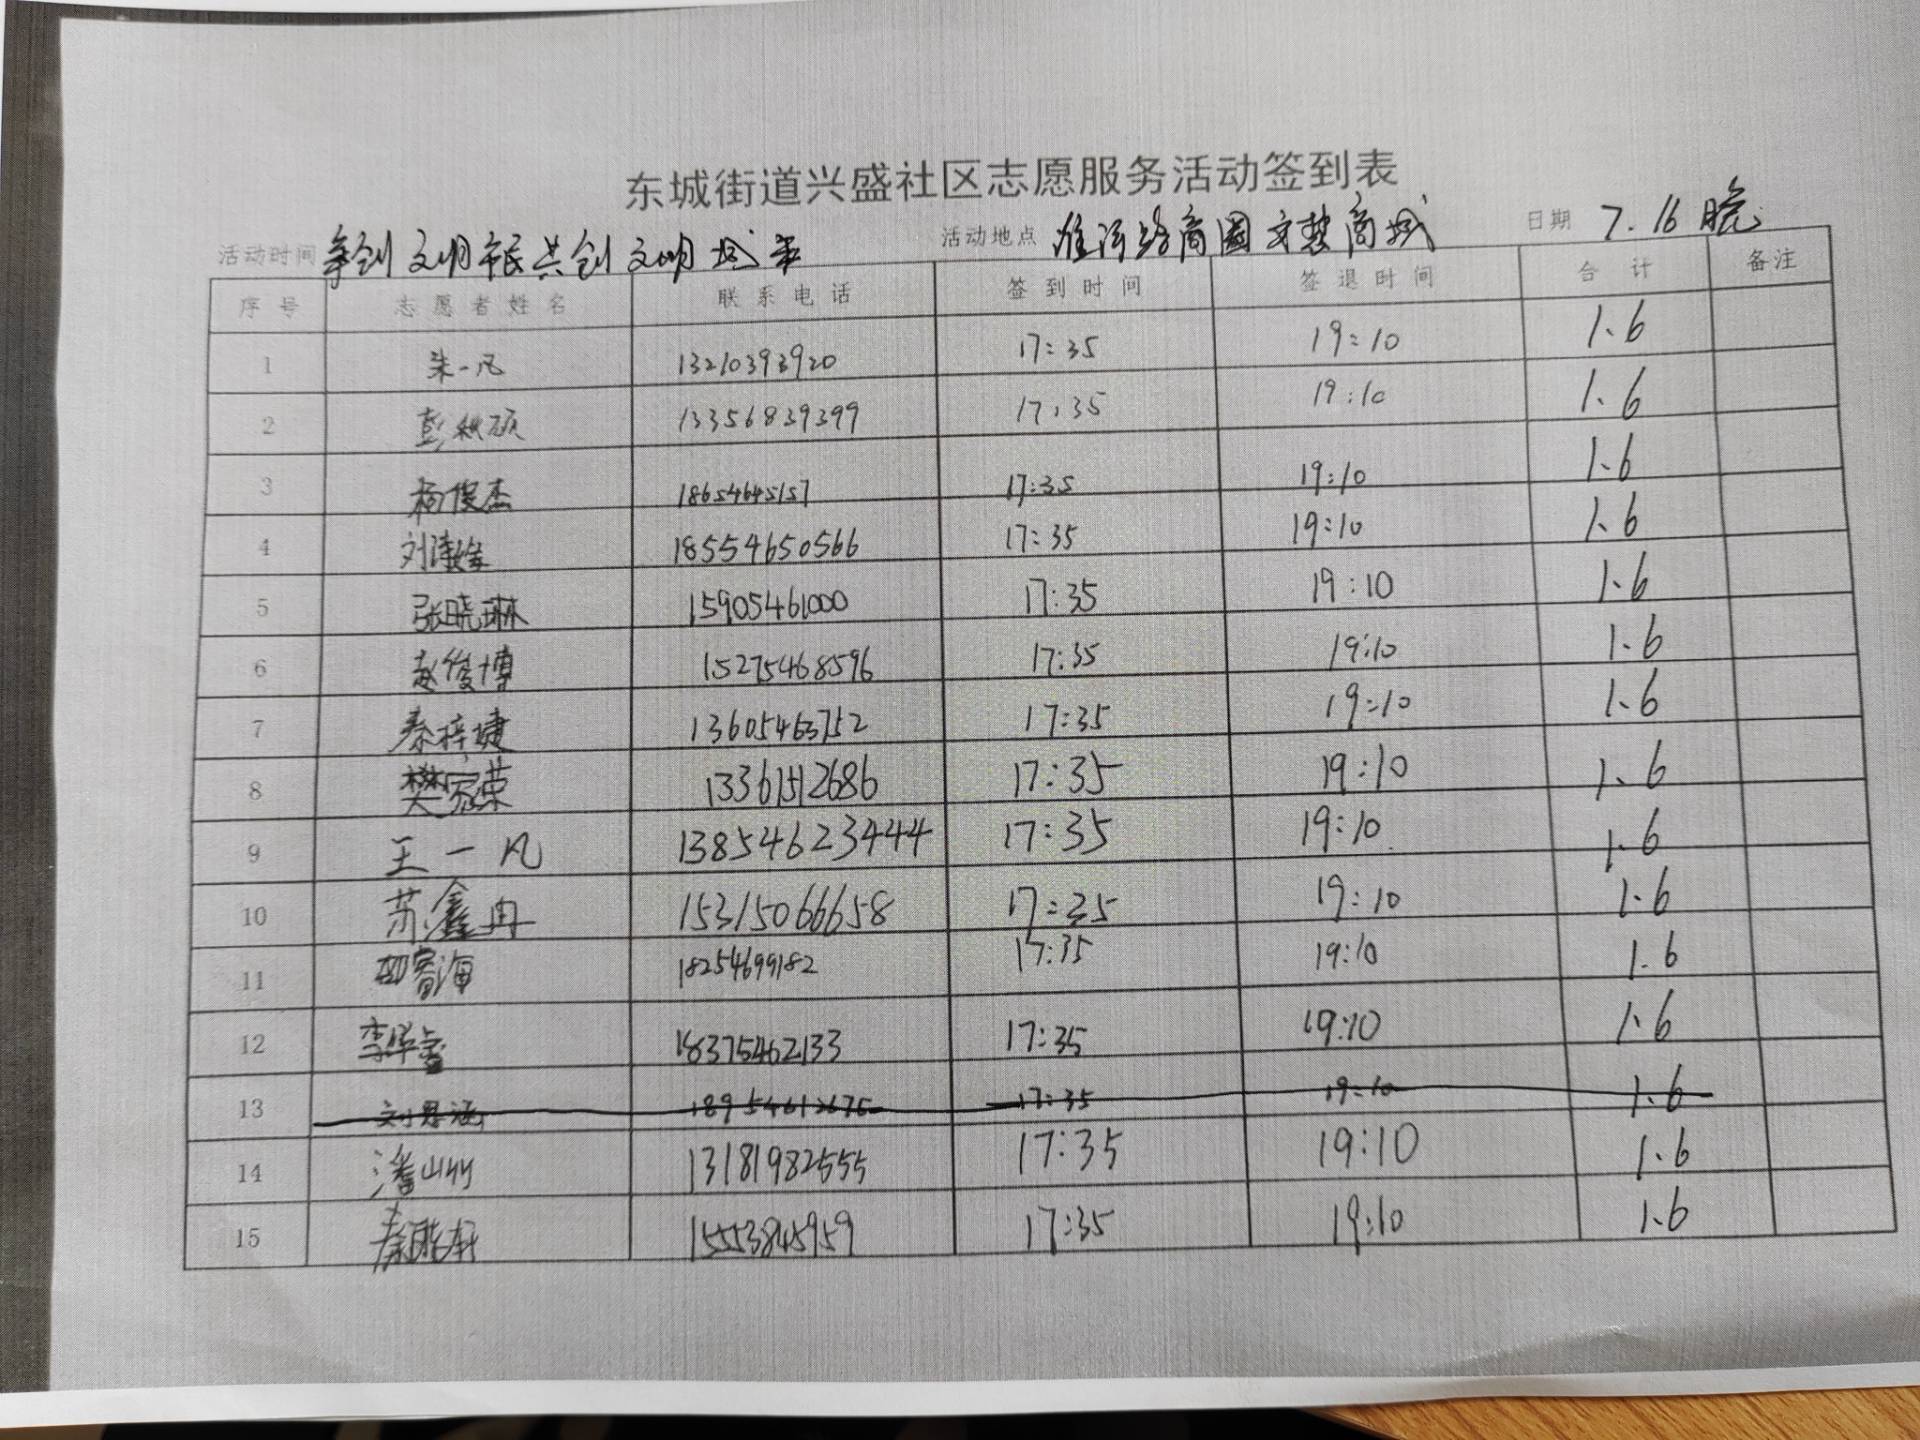 东城街道兴盛社区志愿服务活动签到表
活动时间 争创文明市民共创文明城市 活动地点 淮河路商圈文慧商城 日期 7.16晚
序号 志愿者姓名 联系电话 签到时间 签退时间 合计 备注
1 朱一凡 13210393920 17:35 19:10 1.6
2 彭秋硕 13356839399 17:35 19:10 1.6
3 杨俊杰 18654645157 17:35 19:10 1.6
4 刘 18554650566 17:35 19:10 1.6
5 张晓琳 15905461000 17:35 19:10 1.6
6 赵俊博 15275468596 17:35 19:10 1.6
7 秦梓婕 13605463752 17:35 19:10 1.6
8 樊家荣 13361512686 17:35 19:10 1.6
9 王一凡 13854623444 17:35 19:10 1.6
10 苏鑫冉 15315066658 17:35 19:10 1.6
11 睿海 18254699182 17:35 19:10 1.6
12 李华睿 18375462133 17:35 19:10 1.6
13 刘思涵 18954612675 17:35 19:10 1.6
14 潘山竹 13181982555 17:35 19:10 1.6
15 秦 15553845959 17:35 19:10 1.6